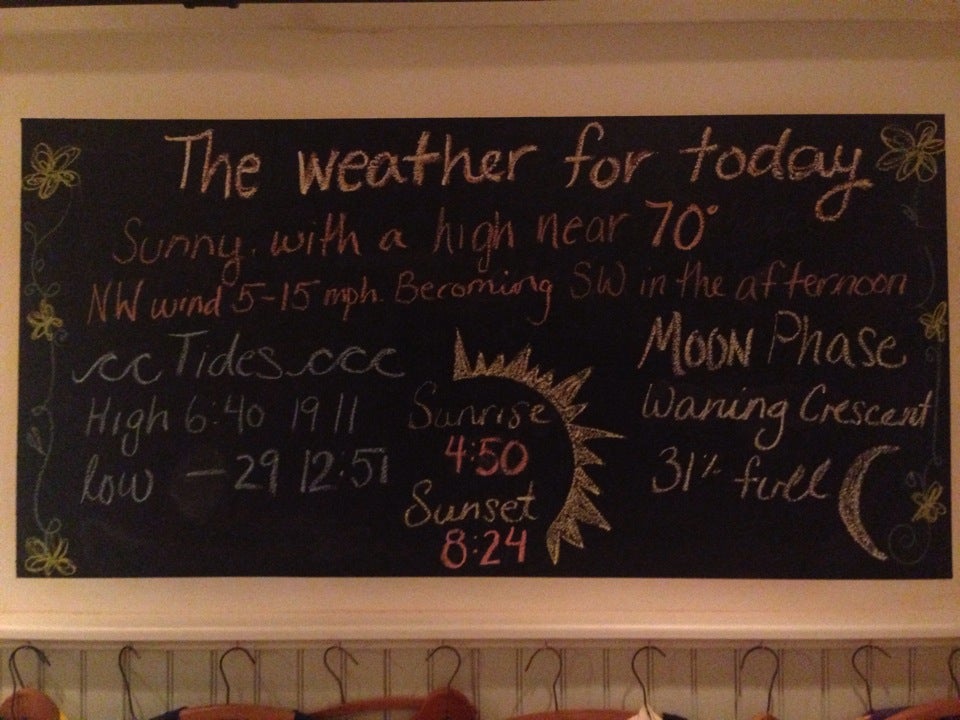 The weather for today
Sunny, with a high near 70°
NW wind 5-15 mph. Becoming SW in the afternoon
Tides
High 6:40 19 11
low -29 12:51
Sunrise
4:50
Sunset
8:24
Moon Phase
Waning Crescent
31% full